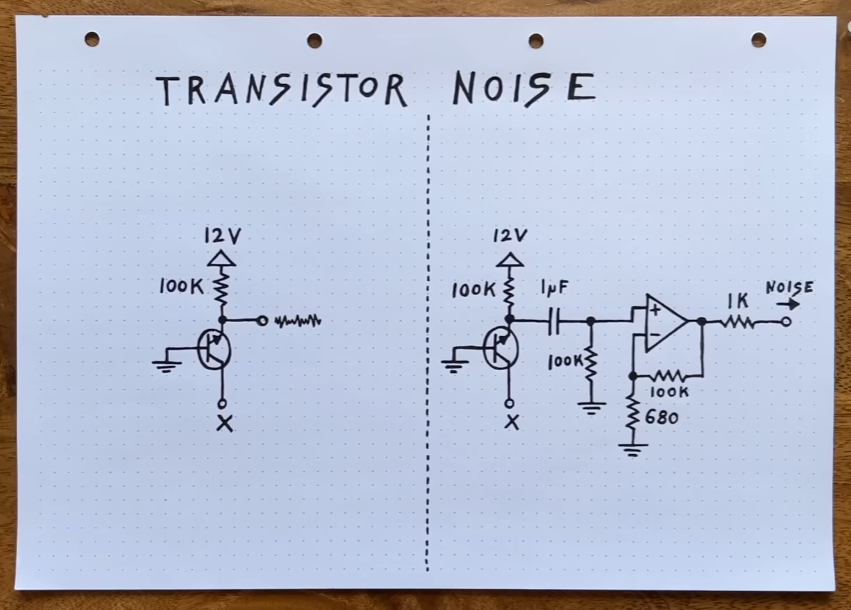 TRANSISTOR NOISE
12V
100K
X
12V
100K
1µF
100K
+
-
100K
680
1K
NOISE
X